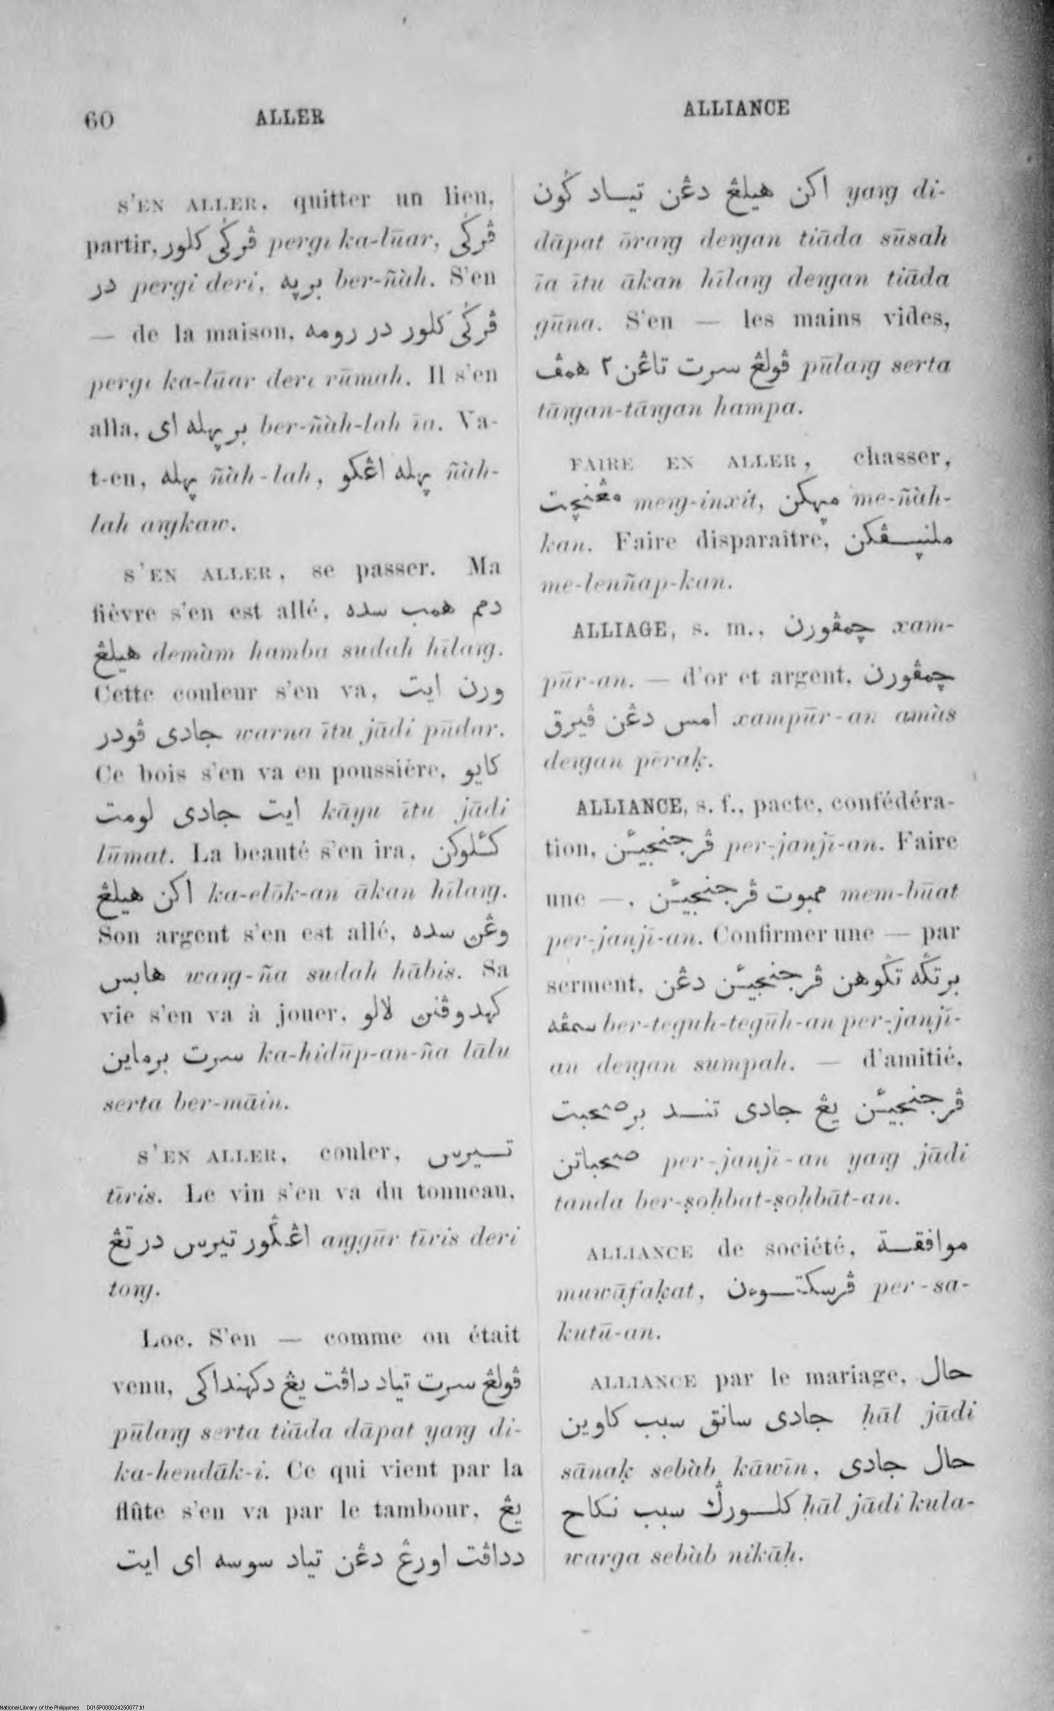 60 ALLER
ALLIANCE
S'EN ALLER, quitter un lieu,
partir, ڤرݢي كلور pergi ka-lūar, ڤرݢي
در pergi deri, برڽه ber-ñàh. S'en
— de la maison, ڤرݢي كلور در رومه
pergi ka-lūar deri rūmah. Il s'en
alla, برڽهله اى ber-ñàh-lah īa. Va-
t-en, ڽهله ñàh-lah, ڽهله اڠكو ñàh-
lah aŋkaw.
S'EN ALLER, se passer. Ma
fièvre s'en est allé, دمم همب سده
هيلڠ demùm hamba sudah hīlaŋ.
Cette couleur s'en va, ورن ايت
جادى ڤودر warna ītu jādi pūdar.
Ce bois s'en va en poussière, كايو
ايت جادى لومت kāyu ītu jādi
lūmat. La beauté s'en ira, كئلوكن
اكن هيلڠ ka-elōk-an ākan hīlaŋ.
Son argent s'en est allé, وڠن سده
هابس waŋ-ña sudah hābis. Sa
vie s'en va à jouer, كهدوڤنن لالو
سرت برماين ka-hidūp-an-ña lālu
serta ber-māin.
S'EN ALLER, couler, تيرس
tīris. Le vin s'en va du tonneau,
اڠݢور تيرس در تڠ aŋgūr tīris deri
toŋ.
Loc. S'en — comme on était
venu, ڤولڠ سرت تياد داڤت يڠ دكهنداكى
pūlaŋ serta tiāda dāpat yaŋ di-
ka-hendāk-i. Ce qui vient par la
flûte s'en va par le tambour, يڠ
دداڤت اورڠ دڠن تياد سوسه اى ايت
اكن هيلڠ دڠن تياد ݢون yaŋ di-
dāpat ōraŋ deŋan tiāda sūsah
īa ītu ākan hīlaŋ deŋan tiāda
gūna. S'en — les mains vides,
ڤولڠ سرت تاڠن٢ همڤ pūlaŋ serta
tāŋan-tāŋan hampa.
FAIRE EN ALLER, chasser,
مڠنچت meŋ-inxit, مڽهكن me-ñàh-
kan. Faire disparaître, ملنڽڤكن
me-lenñap-kan.
ALLIAGE, s. m., چمڤورن xam-
pūr-an. — d'or et argent, چمڤورن
امس دڠن ڤيرق xampūr-an amàs
deŋan pēraḳ.
ALLIANCE, s. f., pacte, confédéra-
tion, ڤرجنجيئن per-janjī-an. Faire
une —, ممبوت ڤرجنجيئن mem-būat
per-janjī-an. Confirmer une — par
serment, برتݢه تݢوهن ڤرجنجيئن دڠن
سمڤه ber-teguh-tegūh-an per-janjī-
an deŋan sumpah. — d'amitié,
ڤرجنجيئن يڠ جادى تند برصحبت
صحباتن per-janjī-an yaŋ jādi
tanda ber-ṣoḥbat-ṣoḥbāt-an.
ALLIANCE de société, موافقة
muwāfaḳat, ڤرسكتوءن per-sa-
kutū-an.
ALLIANCE par le mariage, حال
جادى سانق سبب كاوين ḥāl jādi
sānaḳ sebàb kāwīn, حال جادى
كلورݢ سبب نكاح ḥāl jādi kula-
warga sebàb nikāḥ.
National Library of the Philippines